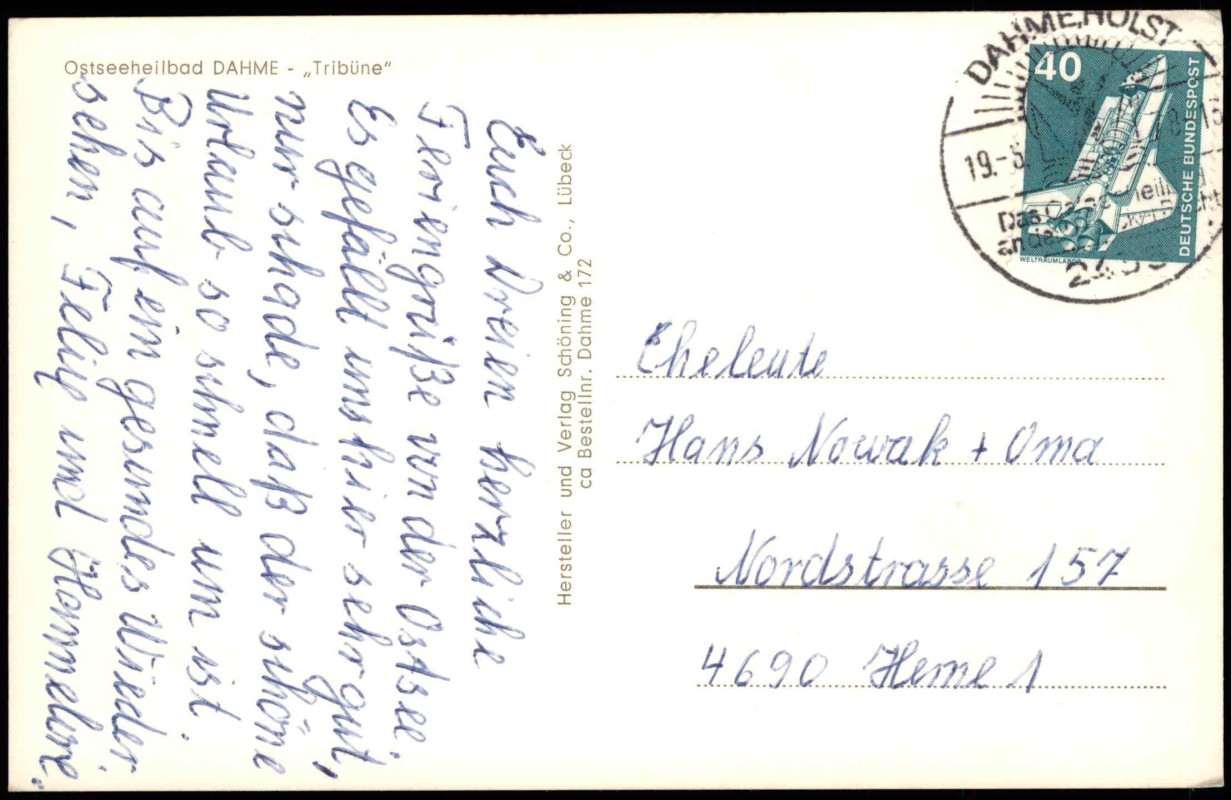 Ostseeheilbad DAHME - „Tribüne"
Euch Dreien herzliche
Feriengrüße von der Ostsee.
Es gefällt uns hier sehr gut,
nur schade, daß der schöne
Urlaub so schnell um ist.
Bis auf ein gesundes Wieder
sehen, Felix und Hannelore.
Hersteller und Verlag Schöning & Co., Lübeck
ca Bestellnr. Dahme 172
DAHME, HOLST
19.-8.
Das
2435
40
DEUTSCHE BUNDESPOST
WELTRAUMLABOR
Eheleute
Hans Nowak + Oma
Nordstrasse 157
4690 Herne 1